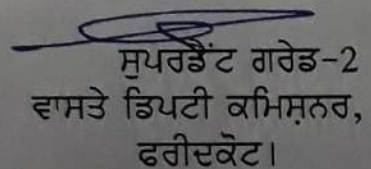 ਸੁਪਰਡੈਂਟ ਗਰੇਡ-2
ਵਾਸਤੇ ਡਿਪਟੀ ਕਮਿਸ਼ਨਰ,
ਫਰੀਦਕੋਟ।